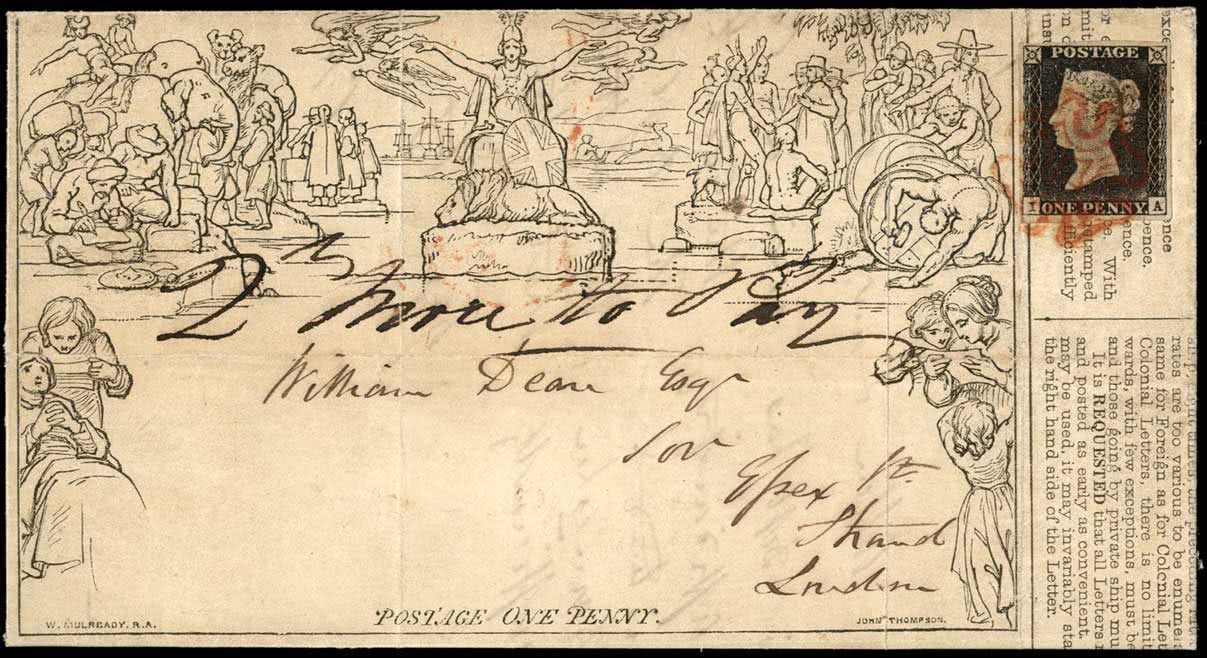 POSTAGE
I ONE PENNY A
2 More to Pay
William Dean Esqr
Sor
Essex St.
Strand
London
POSTAGE ONE PENNY.
W. MULREADY, R.A.
JOHN THOMPSON.
rates are too various to be enumer
same for Foreign as for Colonial Let
Colonial Letters, there is no limit
wards, with few exceptions, must be
and those going by private ship mu
It is REQUESTED that all Letters
and posted as early as convenient.
may be used, it may invariably sta
the right hand side of the Letter.
With
stamped
efficiently